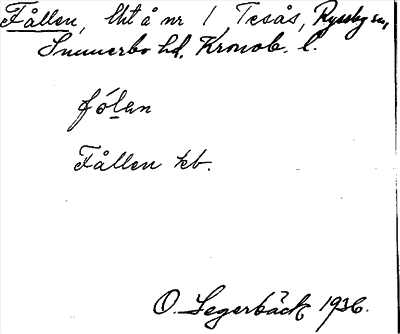 Fållen, Utä nr 1, Tesås, Ryssby sn,
Sunnerbo hd. Kronob. l.
fó̲lan
Fållen kb.
O. Segerbäck 1936.